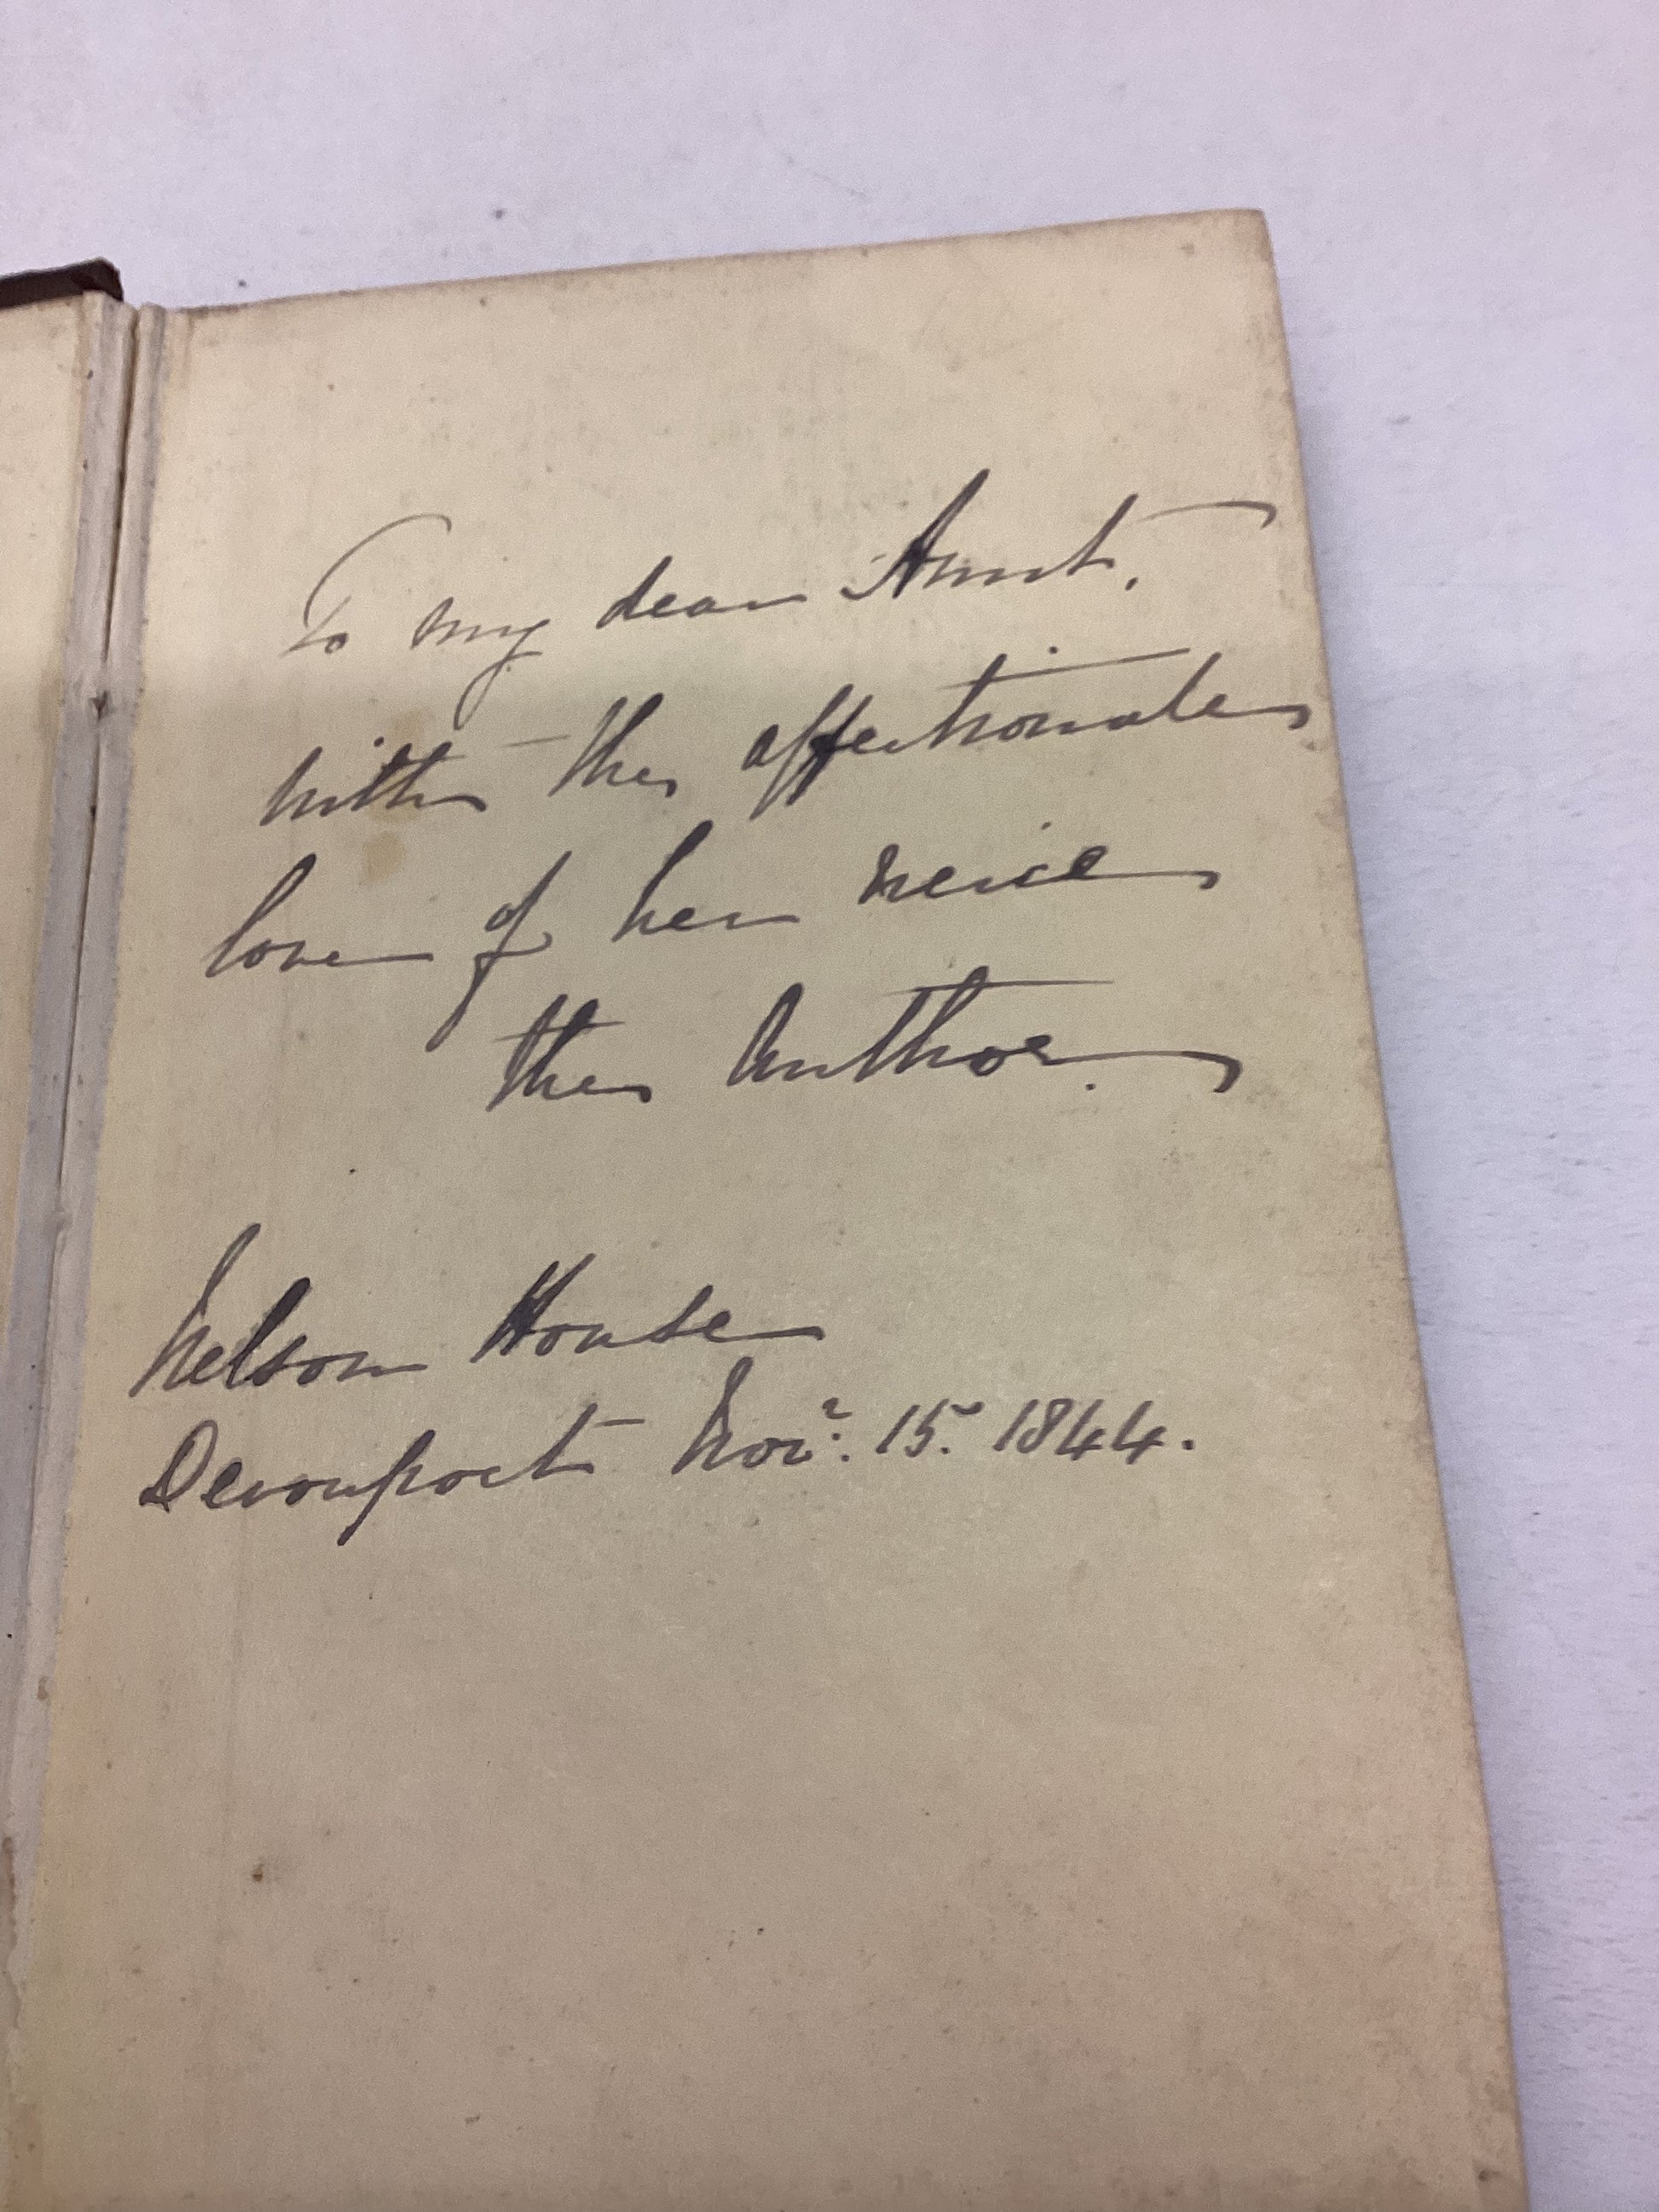 To my dear Aunt,
with the affectionate
love of her neice
the Author.
Nelson House
Devonport Novr. 15. 1844.